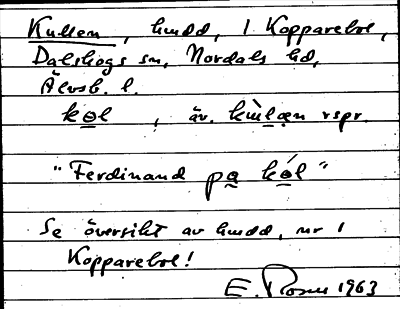 Kullen, hmdd, 1 Kopparebol,
Dalskogs sn, Nordals hd,
Älvsb. l.
kəl , äv. kùlæn rspr.
"Ferdinand pa kól"
Se översikt av hmdd, nr 1
Kopparebol!
E. Rosén 1963